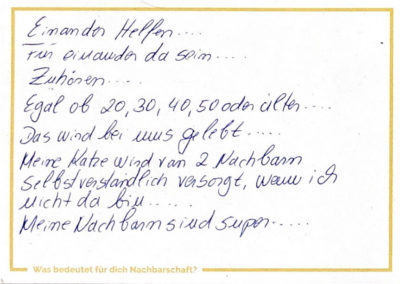 Einander Helfen....
Für einander da sein....
Zuhören....
Egal ob 20, 30, 40, 50 oder älter....
Das wird bei uns gelebt.....
Meine Katze wird von 2 Nachbarn
Selbstverständlich versorgt, wenn ich
nicht da bin.....
Meine Nachbarn sind super.....
Was bedeutet für dich Nachbarschaft?